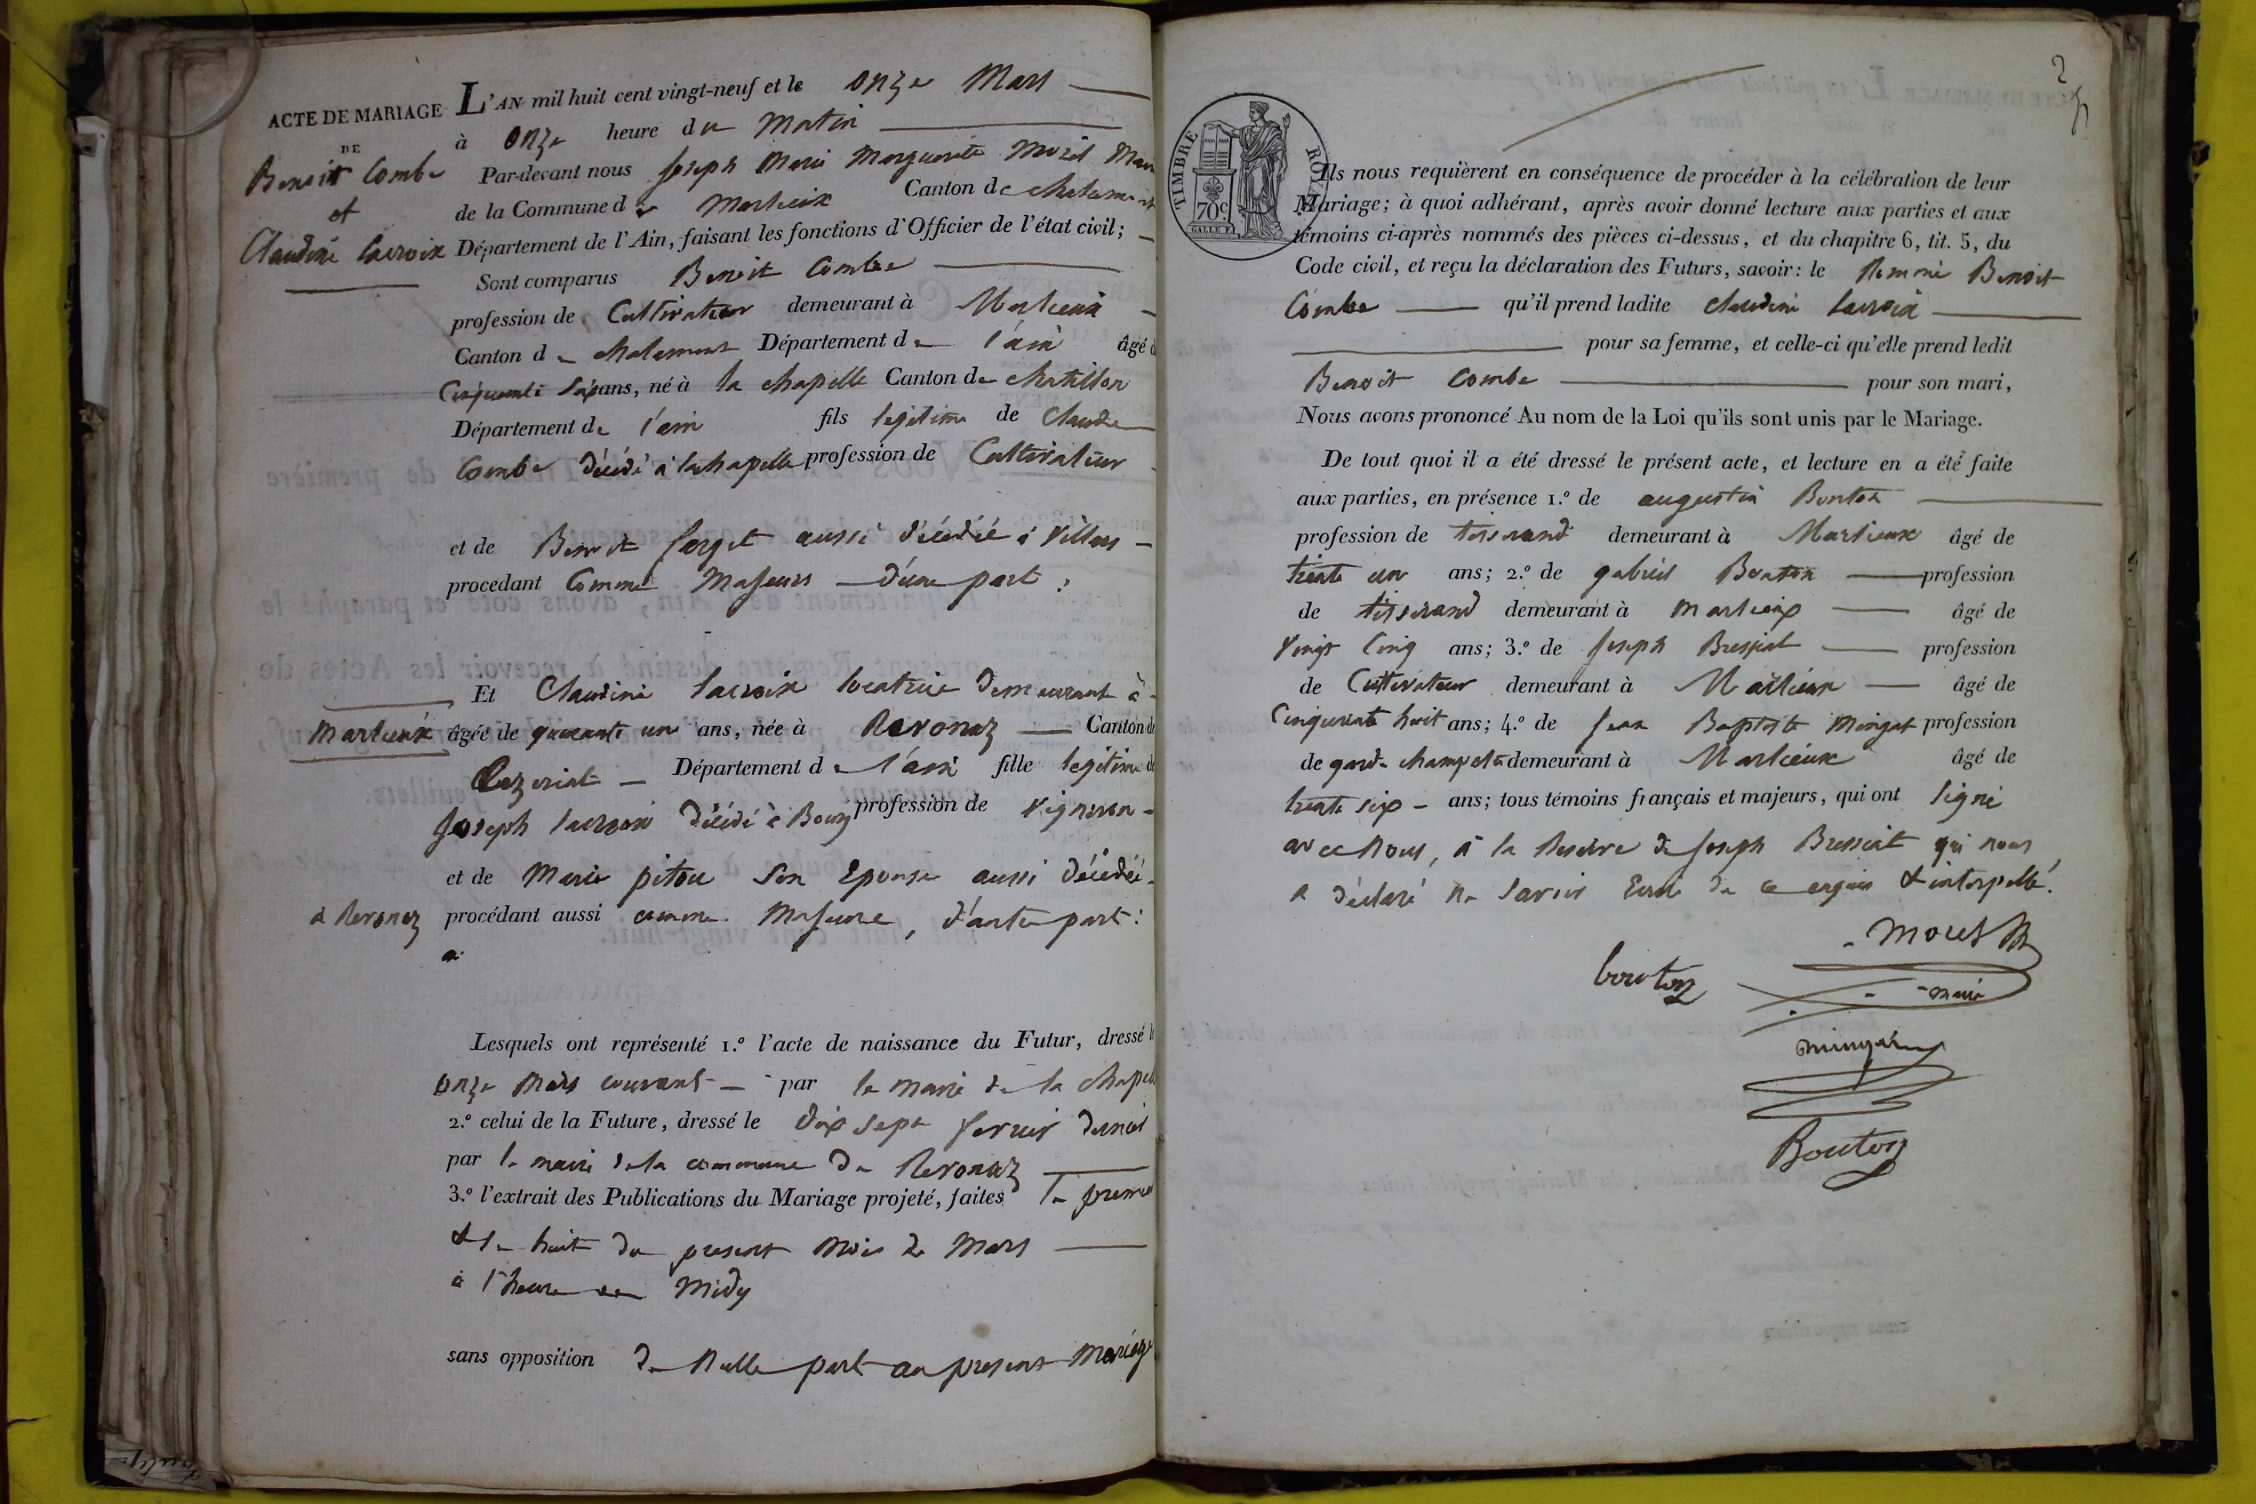 ACTE DE MARIAGE
DE
Benoit Combe
et
Claudine Lacroix
L'AN mil huit cent vingt-neuf et le onze Mars
à onze heure du Matin
Par-devant nous Joseph Marie Marguerite Morel Maire
de la Commune de Marlieux Canton de chalamont
Département de l'Ain, faisant les fonctions d'Officier de l'état civil;
Sont comparus Benoit Combe
profession de Cultivateur demeurant à Marlieux
Canton de chalamont Département de l'ain âgé d
Cinquante ans, né à la chapelle Canton de chatillon
Département de l'ain fils légitime de Claude
Combe décédé à lachapelle profession de Cultivateur
et de Benoit forget aussi décédée à Villars
procedant Comme Majeurs d'une part;
Et Claudine lacroix locatrice demeurant à
Marlieux âgée de quarante un ans, née à Revonaz Canton de
Cezeriat Département de l'ain fille légitime de
Joseph lacroix décédé à Bourg profession de vigneron
et de Marie pitou son Epouse aussi décédée
à Revonaz procédant aussi comme Majeure, d'autre part:
Lesquels ont représenté 1.º l'acte de naissance du Futur, dressé le
onze Mars courant par le maire de la chapelle
2.º celui de la Future, dressé le dix sept fevrier dernier
par le maire de la commune de Revonaz
3.º l'extrait des Publications du Mariage projeté, faites le premier
& le huit du present Mois de Mars
à l'heure de Midy
sans opposition de Nulle part au present Mariage
2
TIMBRE ROYAL
70c
Ils nous requièrent en conséquence de procéder à la célébration de leur
Mariage; à quoi adhérant, après avoir donné lecture aux parties et aux
témoins ci-après nommés des pièces ci-dessus, et du chapitre 6, tit. 5, du
Code civil, et reçu la déclaration des Futurs, savoir: le Nommé Benoit
Combe qu'il prend ladite Claudine Lacroix
pour sa femme, et celle-ci qu'elle prend ledit
Benoit Combe pour son mari,
Nous avons prononcé Au nom de la Loi qu'ils sont unis par le Mariage.
De tout quoi il a été dressé le présent acte, et lecture en a été faite
aux parties, en présence 1.º de augustin Bouton
profession de tisserand demeurant à Marlieux âgé de
trente un ans; 2.º de gabriel Bouton profession
de tisserand demeurant à marlieux âgé de
vingt Cinq ans; 3.º de Joseph Bressiat profession
de Cultivateur demeurant à Marlieux âgé de
Cinquante huit ans; 4.º de Jean Baptiste Mingat profession
de garde champete demeurant à Marlieux âgé de
trente six ans; tous témoins français et majeurs, qui ont signé
avec Nous, à la Reserve de Joseph Bressiat qui nous
a déclaré ne savoir Ecrire de ce enquis & interpellé.
Morel
bouton
maire
mingat
Bouton